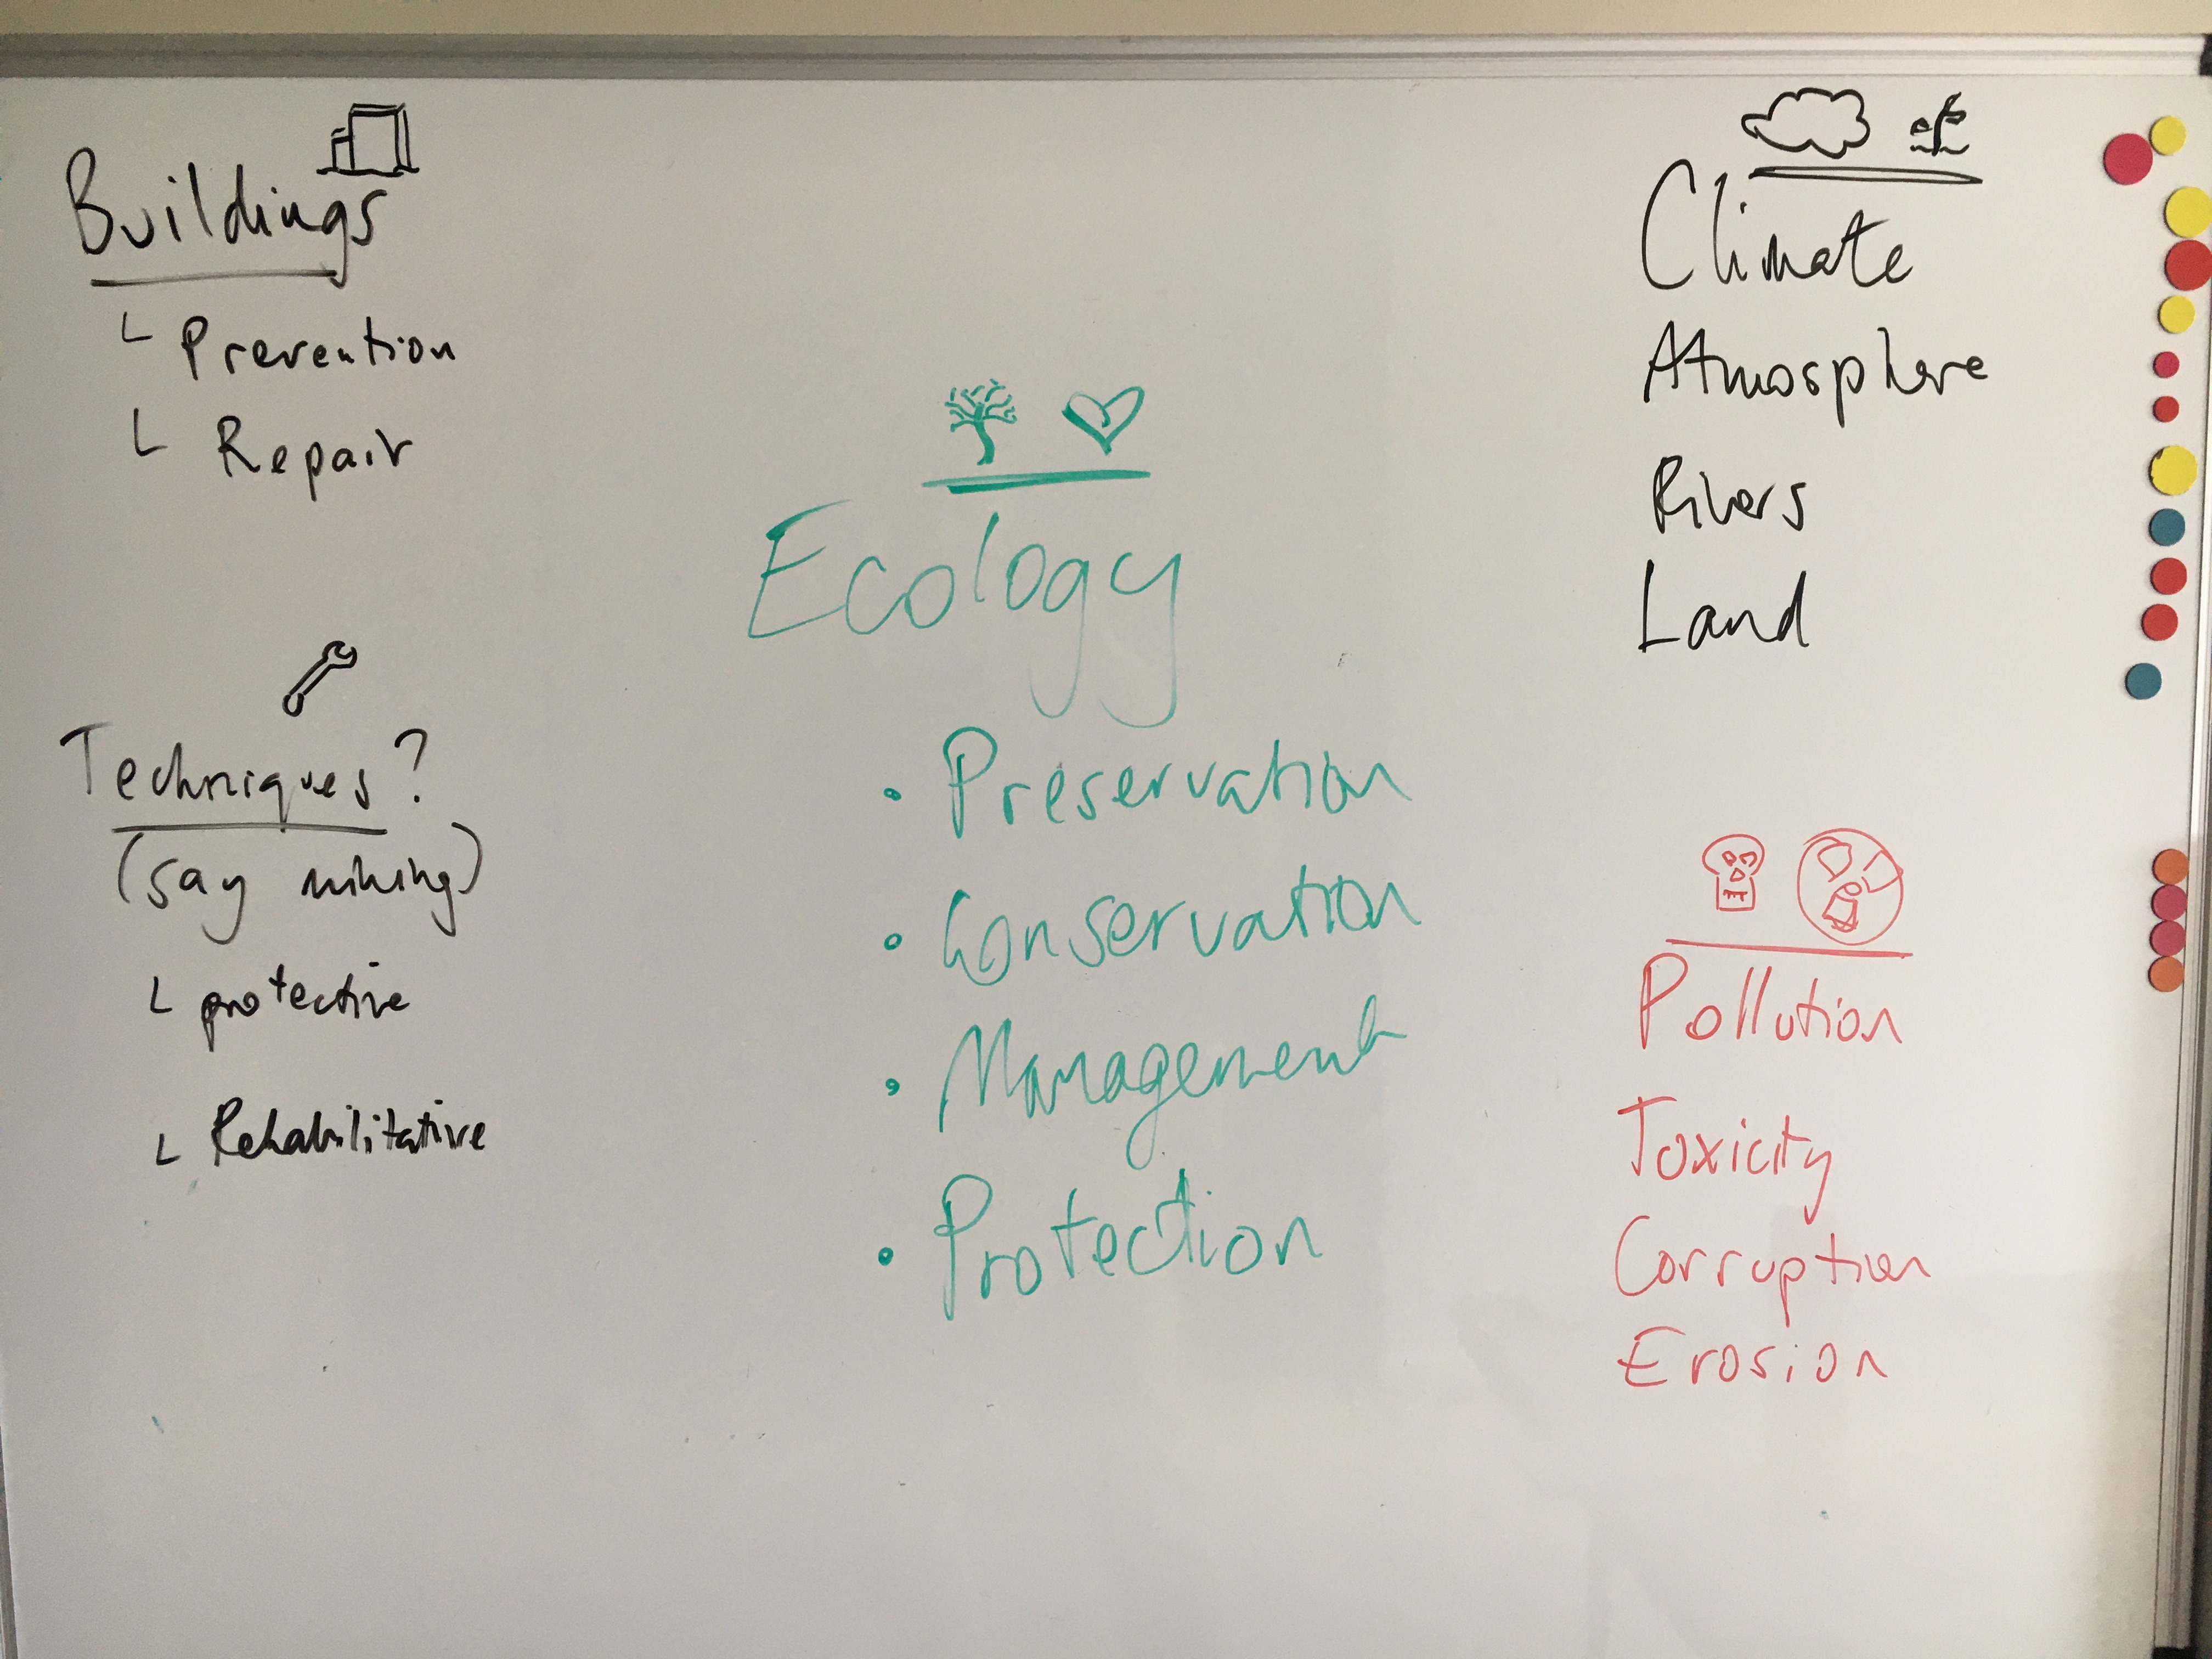 Buildings
Prevention
Repair
Techniques?
(say mining)
protective
Rehabilitative
Ecology
• Preservation
• Conservation
• Management
• Protection
Climate
Atmosphere
Rivers
Land
Pollution
Toxicity
Corruption
Erosion